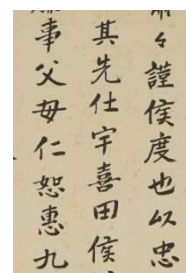 々謹侯度也以忠
其先仕宇喜田侯
事父母仁恕惠九